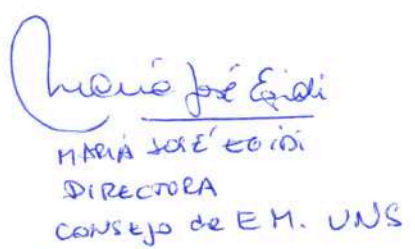 María José Egidi
MARIA JOSÉ EGIDI
DIRECTORA
CONSEJO de E M. UNS